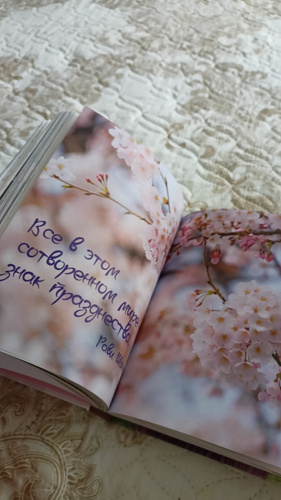 Всё в этом
сотворенном мире
знак празднества
Рови